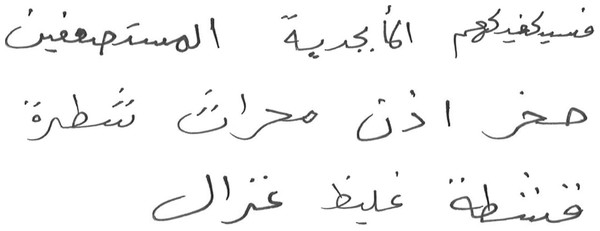 فسيكفيكهم الأبجدية المستضعفين
صخر اذن محراث شطرة
قشطة غليظ غزال